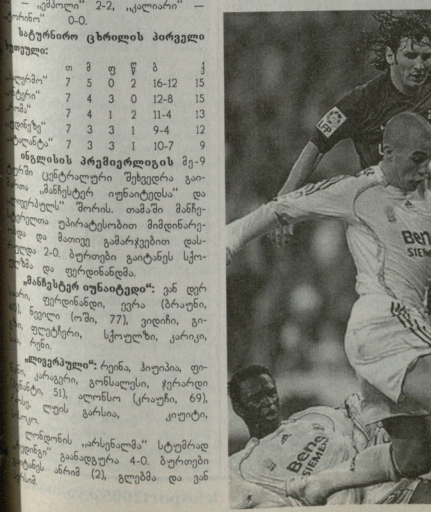 — „ემპოლი“ 2-2, „კალიარი“ —
0-0.
სატურნირო ცხრილის პირველი
თ მ ფ წ ბ ქ
7 5 0 2 16-12 15
7 4 3 0 12-8 15
7 4 1 2 11-4 13
7 3 3 1 9-4 12
7 3 3 1 10-7 9
ინგლისის პრემიერლიგის მე-9
ცენტრალური შეხვედრა გაი-
„მანჩესტერ იუნაიტედსა“ და
შორის. თამაში მანჩე-
უპირატესობით მიმდინარე-
და მათივე გამარჯვებით დას-
2-0. ბურთები გაიტანეს სქო-
და ფერდინანდმა.
„მანჩესტერ იუნაიტედი“: ვან დერ
ფერდინანდი, ევრა (ბრაუნი,
ნევილი (ოში, 77), ვიდიჩი, გი-
ფლეტჩერი, სქოულზი, კარიკი,
რენი.
„ლივერპული“: რეინა, ჰიუპია, ფი-
კარაგერი, გონსალესი, ჯერარდი
51), ალონსო (კრაუჩი, 69),
ლუის გარსია, კიუიტი,
ლონდონის „არსენალმა“ სტუმრად
გაანადგურა 4-0. ბურთები
ანრიმ (2), გლებმა და ვან
LFP
Ben
SIEM
BenQ
SIEMENS